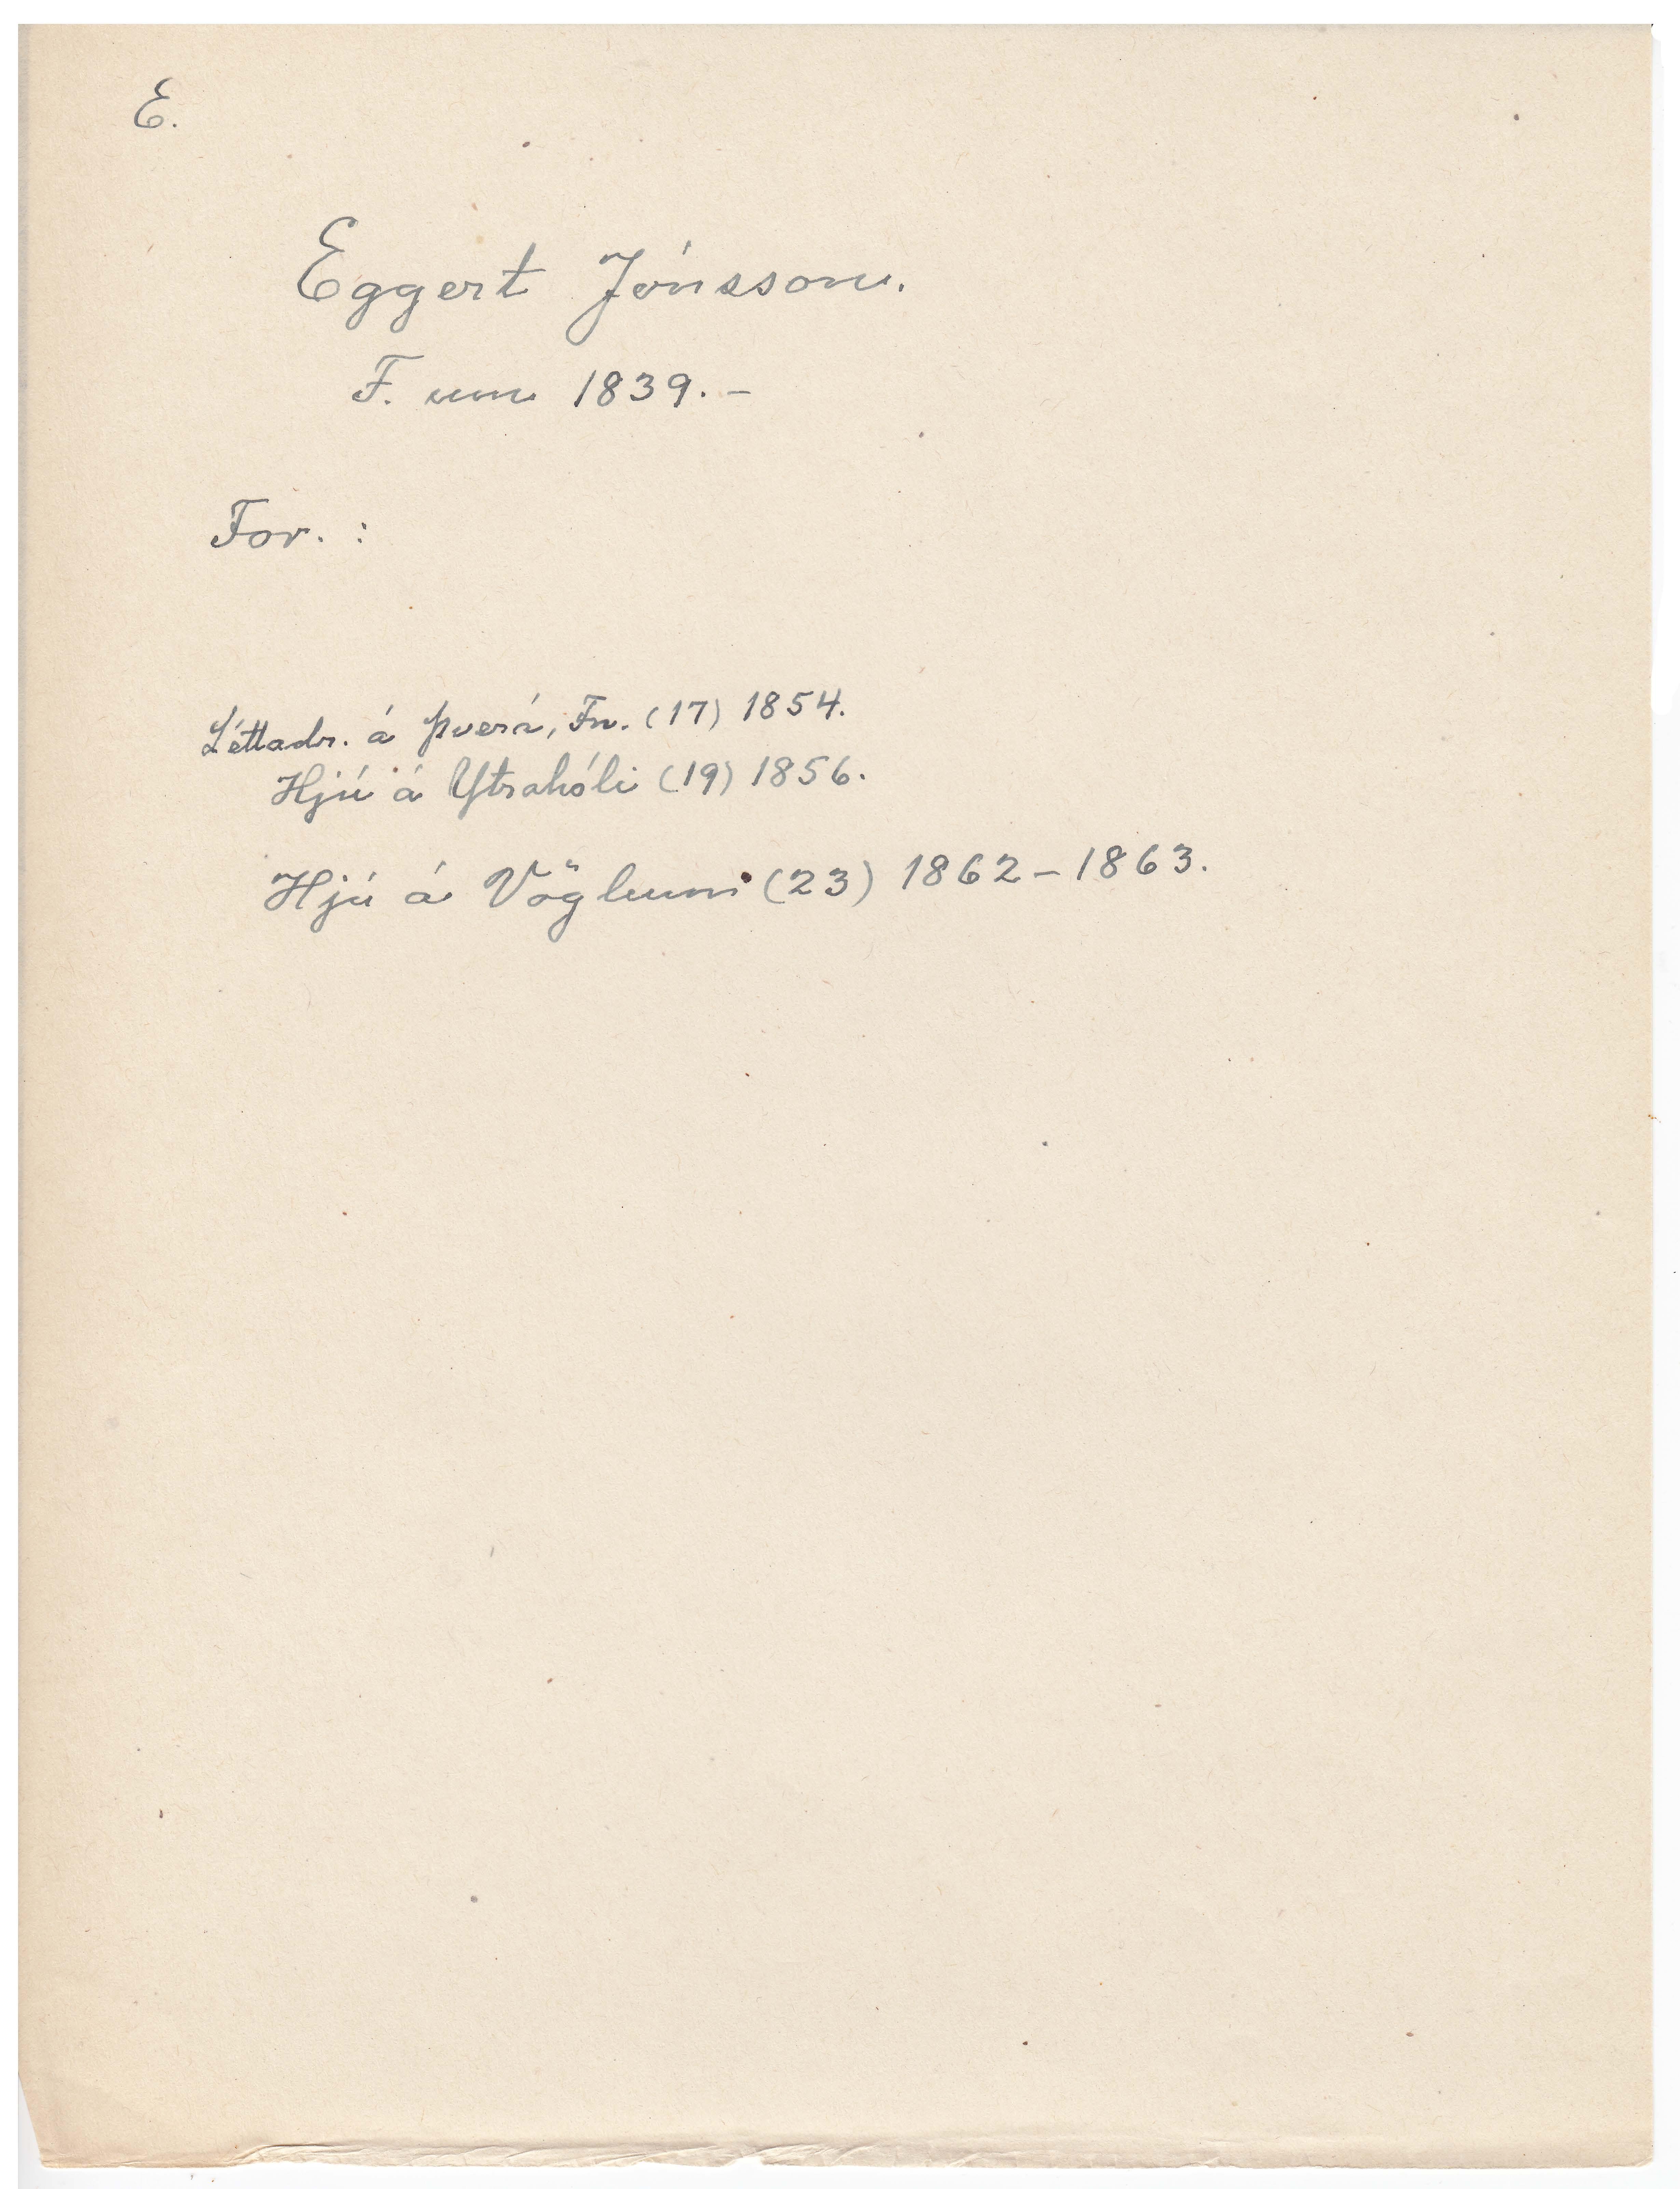 E.
Eggert Jónsson.
F. um 1839. –
For. :
Léttadr. á Þverá, Fn. (17) 1854.
Hjú á Ytrahóli (19) 1856.
Hjú á Vöglum (23) 1862 – 1863.